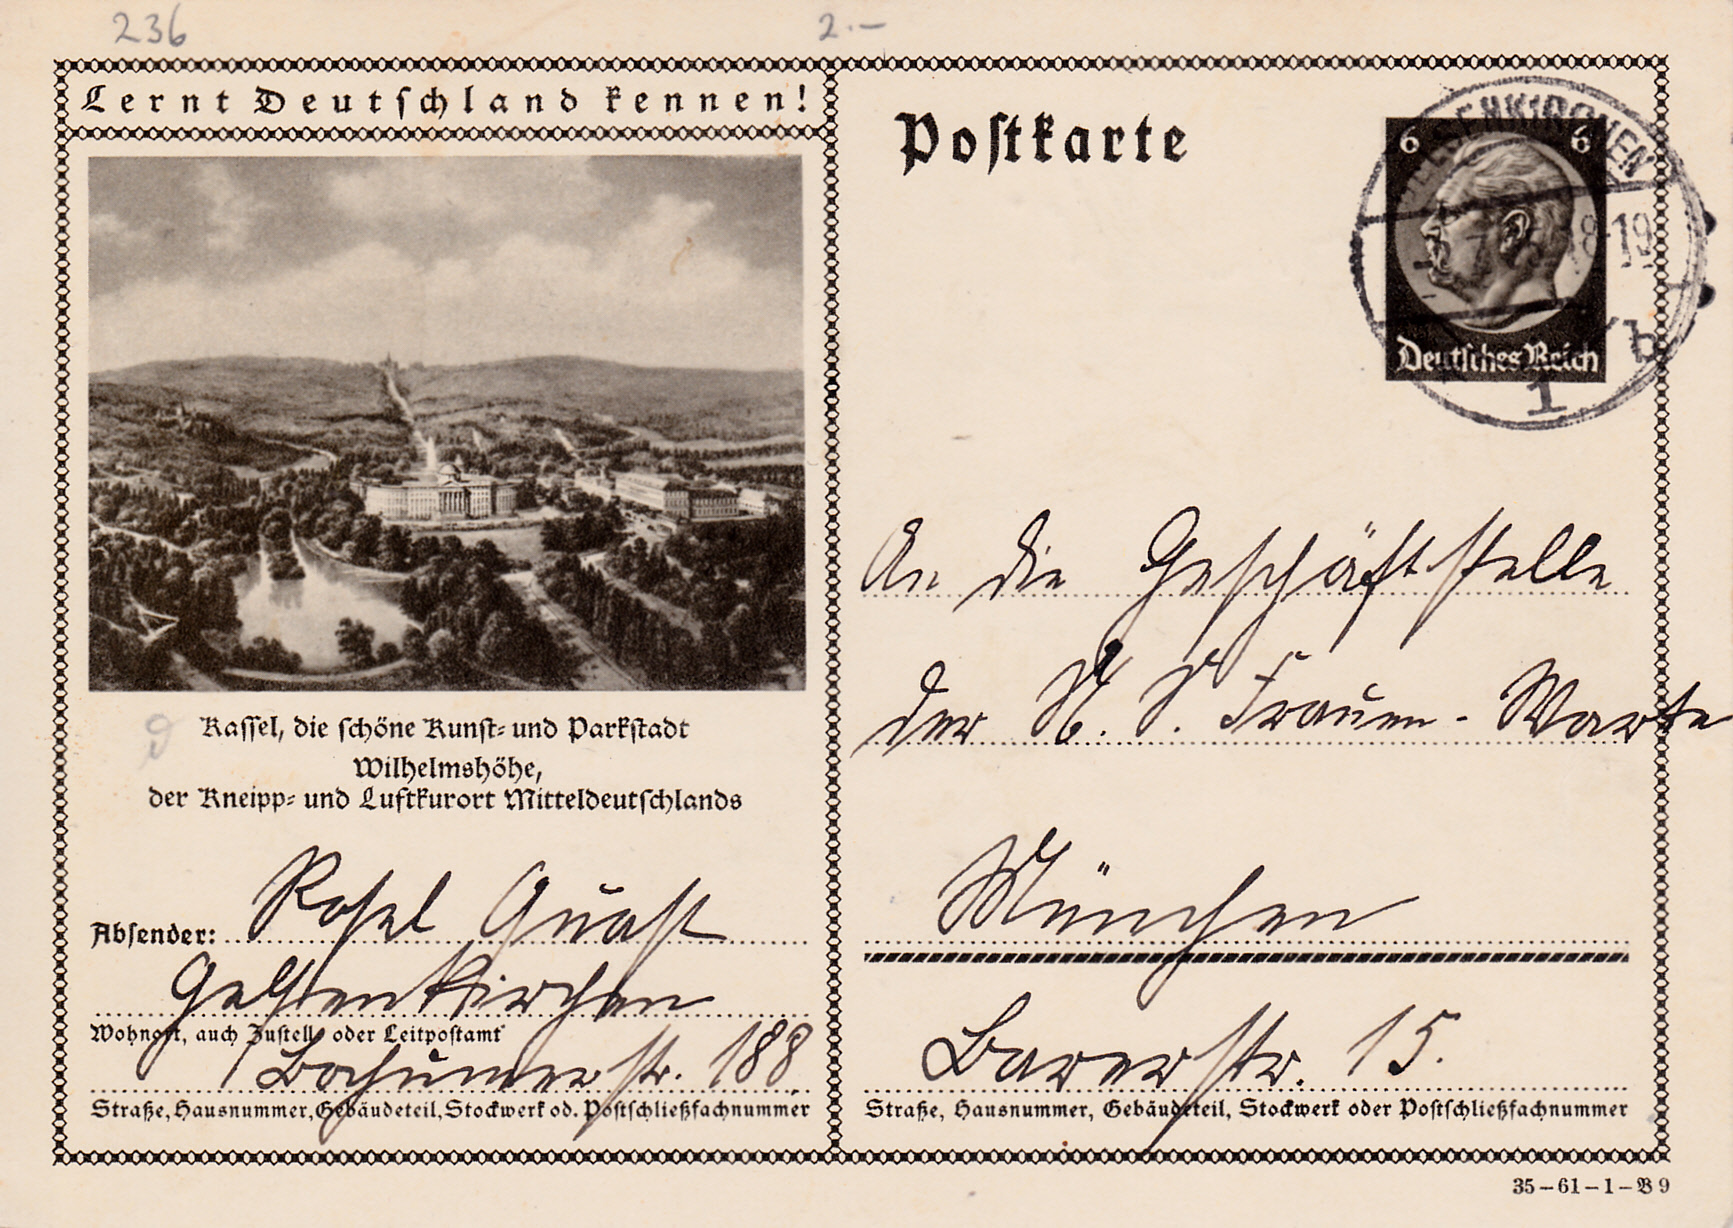 236
2.–
Lernt Deutschland kennen!
Postkarte
6 6
GELSENKIRCHEN
8-19
Deutsches Reich
b
1
Kassel, die schöne Kunst- und Parkstadt
Wilhelmshöhe,
der Kneipp- und Luftkurort Mitteldeutschlands
Absender: Rosel Quast
Gelsenkirchen
Wohnort, auch Zustell- oder Leitpostamt
Bochumerstr. 188
Straße, Hausnummer, Gebäudeteil, Stockwerk od. Postschließfachnummer
An die Geschäftstelle
der N. S. Frauen-Warte
München
Barerstr. 15.
Straße, Hausnummer, Gebäudeteil, Stockwerk oder Postschließfachnummer
35-61-1-B 9